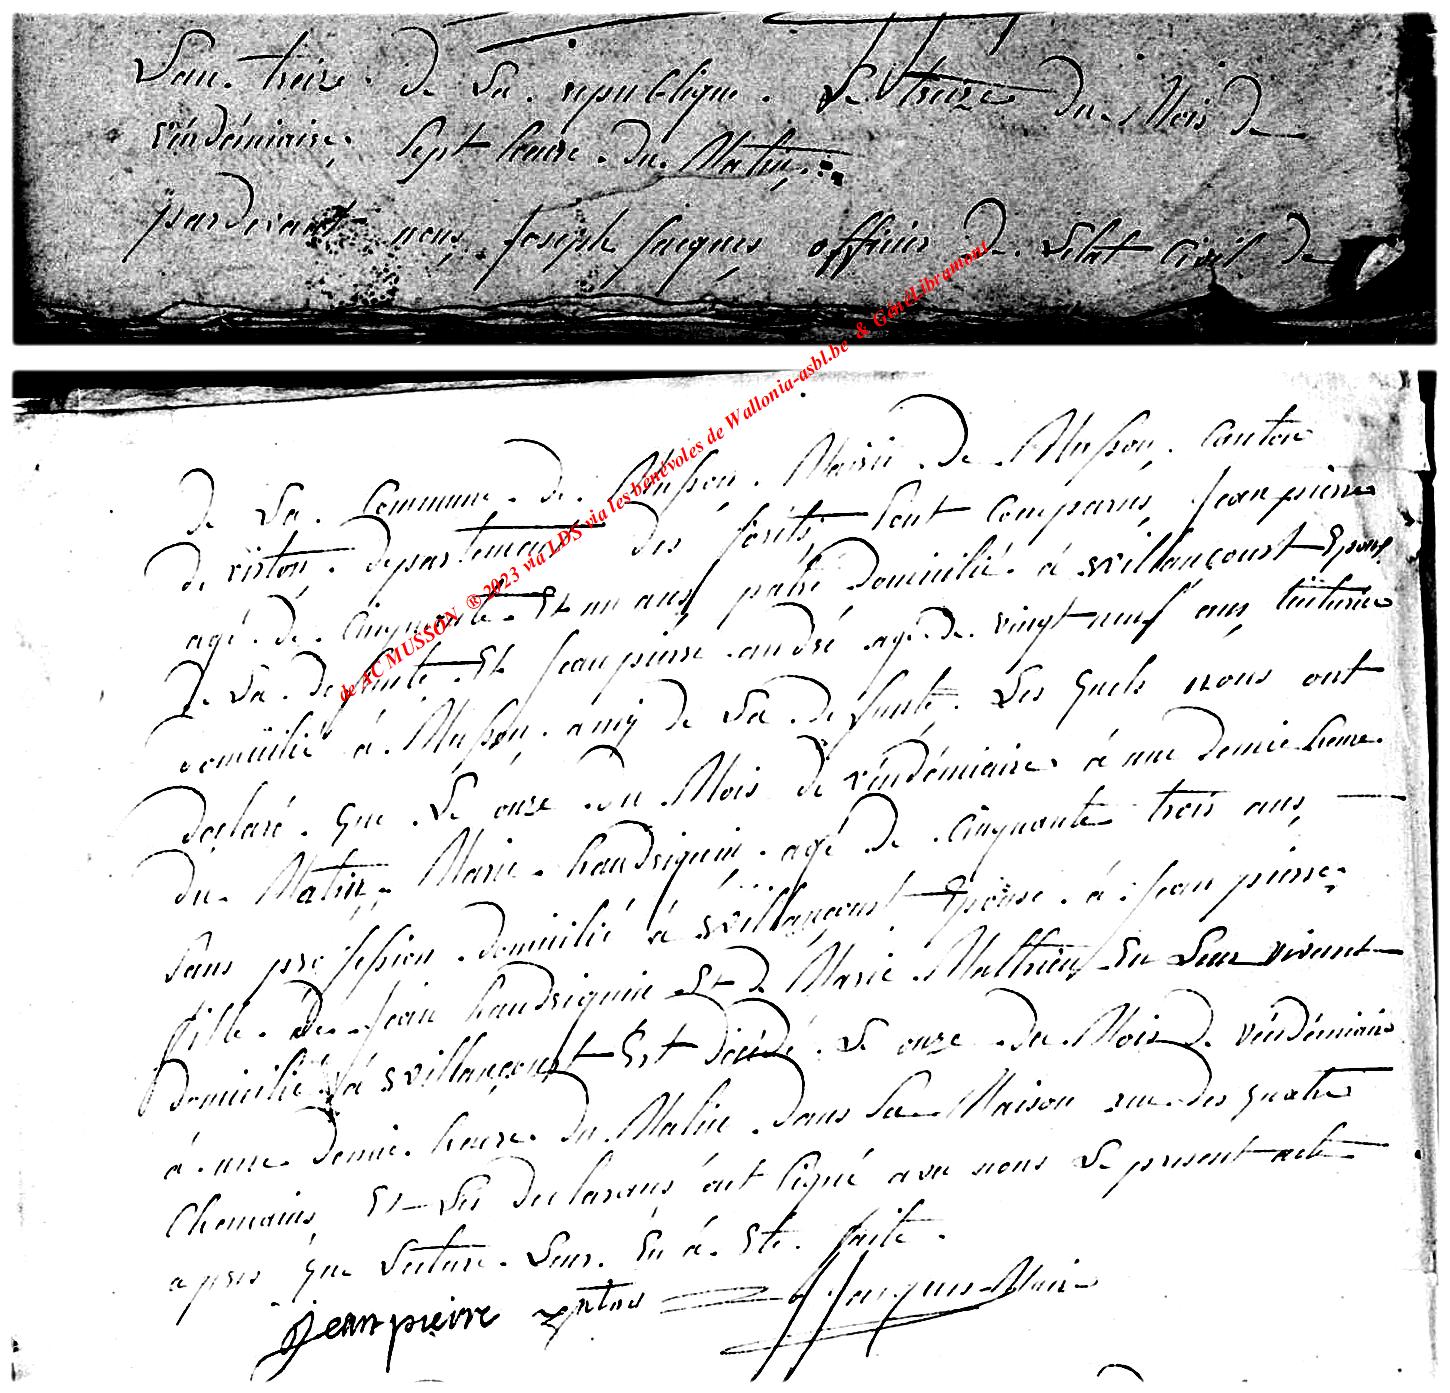 L'an treize de La république Le treize du Mois de
véndémiaire, Sept heure du Matin,
pardevant nous Joseph Jacques officier de L'état Civil de
de La Commune de Musson, Mairie de Musson, Canton
de virton, département des forêts Sont Comparus, Jean pierre
agé de Cinquante Et un ans, patre domicilié à Willancourt Epoux
de La defunte Et Jean pierre andré agé de vingt neuf ans,
domicilié à Musson, amÿ de La defunte, Les quels nous ont
déclaré que Le onze du Mois de véndémiaire à une demie heure
du Matin, Marie handriquin agé de Cinquante trois ans,
Sans profession domicilié à Willancourt Epouse à Jean pierre,
fille de Jean handriquin Et de Marie Mathieu En Leur vivant
domicilié à Willancourt Est décédé Le onze du Mois de véndémiaire
à une demie heure du Matin dans Sa Maison rue des quatre
Chemains, Et Les declarans ont Signé avec nous Le present acte
apres que Lecture Leur En à Eté faite.
jean pierre J Jacques Maire
de ACMUSSON ® 2023 via LDS via les bénévoles de Wallonia-asbl.be & GénéLibramont